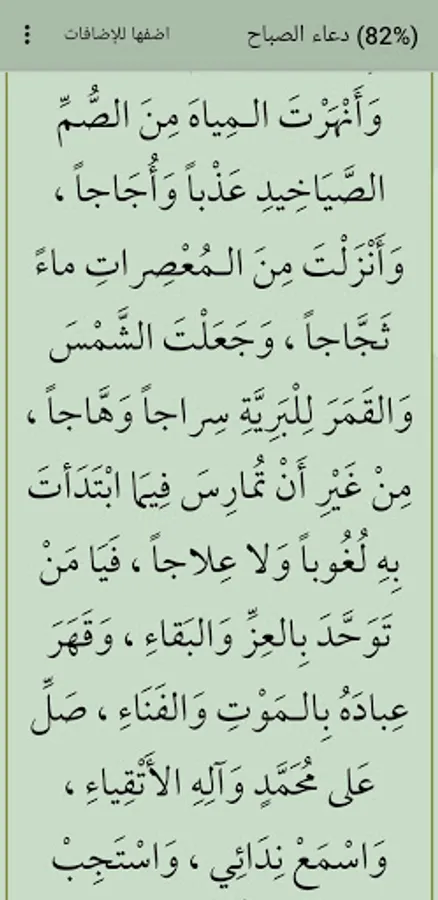 (82%) دعاء الصباح
اضفها للإضافات
وَأَنْهَرْتَ الـمِياهَ مِنَ الصُّمِّ
الصَّيَاخِيدِ عَذْباً وَأُجَاجاً ،
وَأَنْزَلْتَ مِنَ الـمُعْصِراتِ ماءً
ثَجَّاجاً ، وَجَعَلْتَ الشَّمْسَ
وَالقَمَرَ لِلْبَرِيَّةِ سِراجاً وَهَّاجاً ،
مِنْ غَيْرِ أَنْ تُمارِسَ فِيمَا ابْتَدَأتَ
بِهِ لُغُوباً وَلا عِلاجاً ، فَيَا مَنْ
تَوَحَّدَ بِالعِزِّ وَالبَقاءِ ، وَقَهَرَ
عِبادَهُ بِالـمَوْتِ وَالفَنَاءِ ، صَلِّ
عَلى مُحَمَّدٍ وَآلِهِ الأَتْقِياءِ ،
وَاسْمَعْ نِدَائِي ، وَاسْتَجِبْ